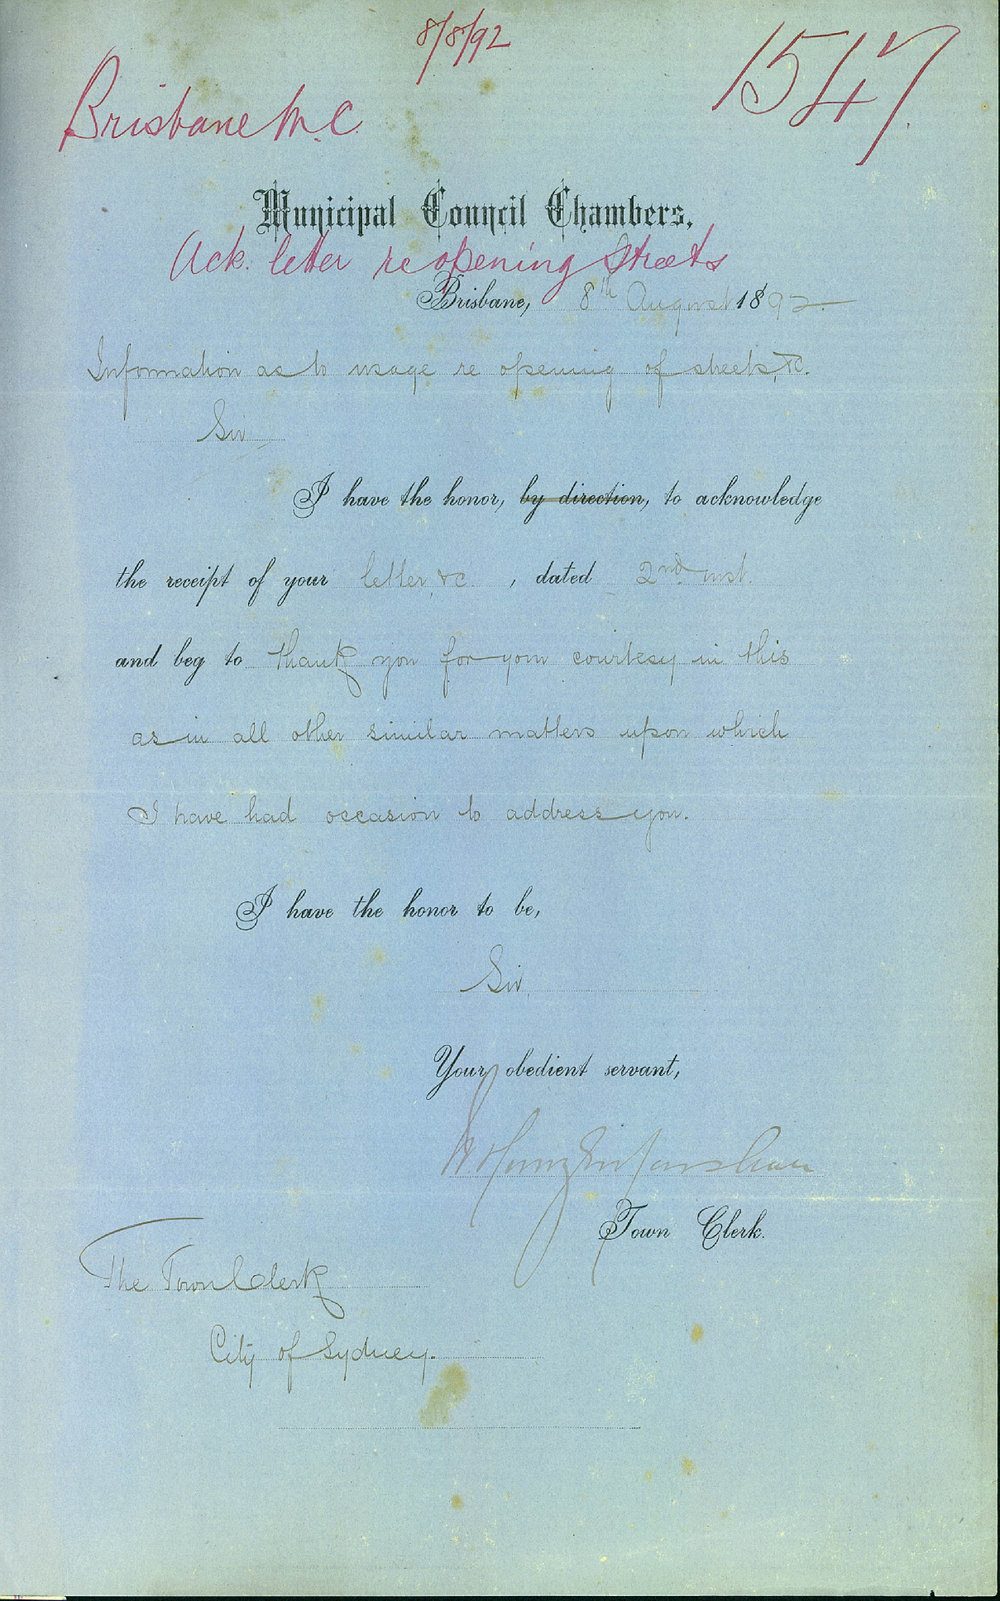 8/8/92
1547.
Brisbane M.C.
Municipal Council Chambers,
Ack. letter re opening Streets
Brisbane, 8th August 1892.
Information as to usage re opening of streets, &c.
Sir
I have the honor, by direction, to acknowledge
the receipt of your letter, &c , dated 2nd inst.
and beg to thank you for your courtesy in this
as in all other similar matters upon which
I have had occasion to address you.
I have the honor to be,
Sir,
Your obedient servant,
Town Clerk.
The Town Clerk
City of Sydney.